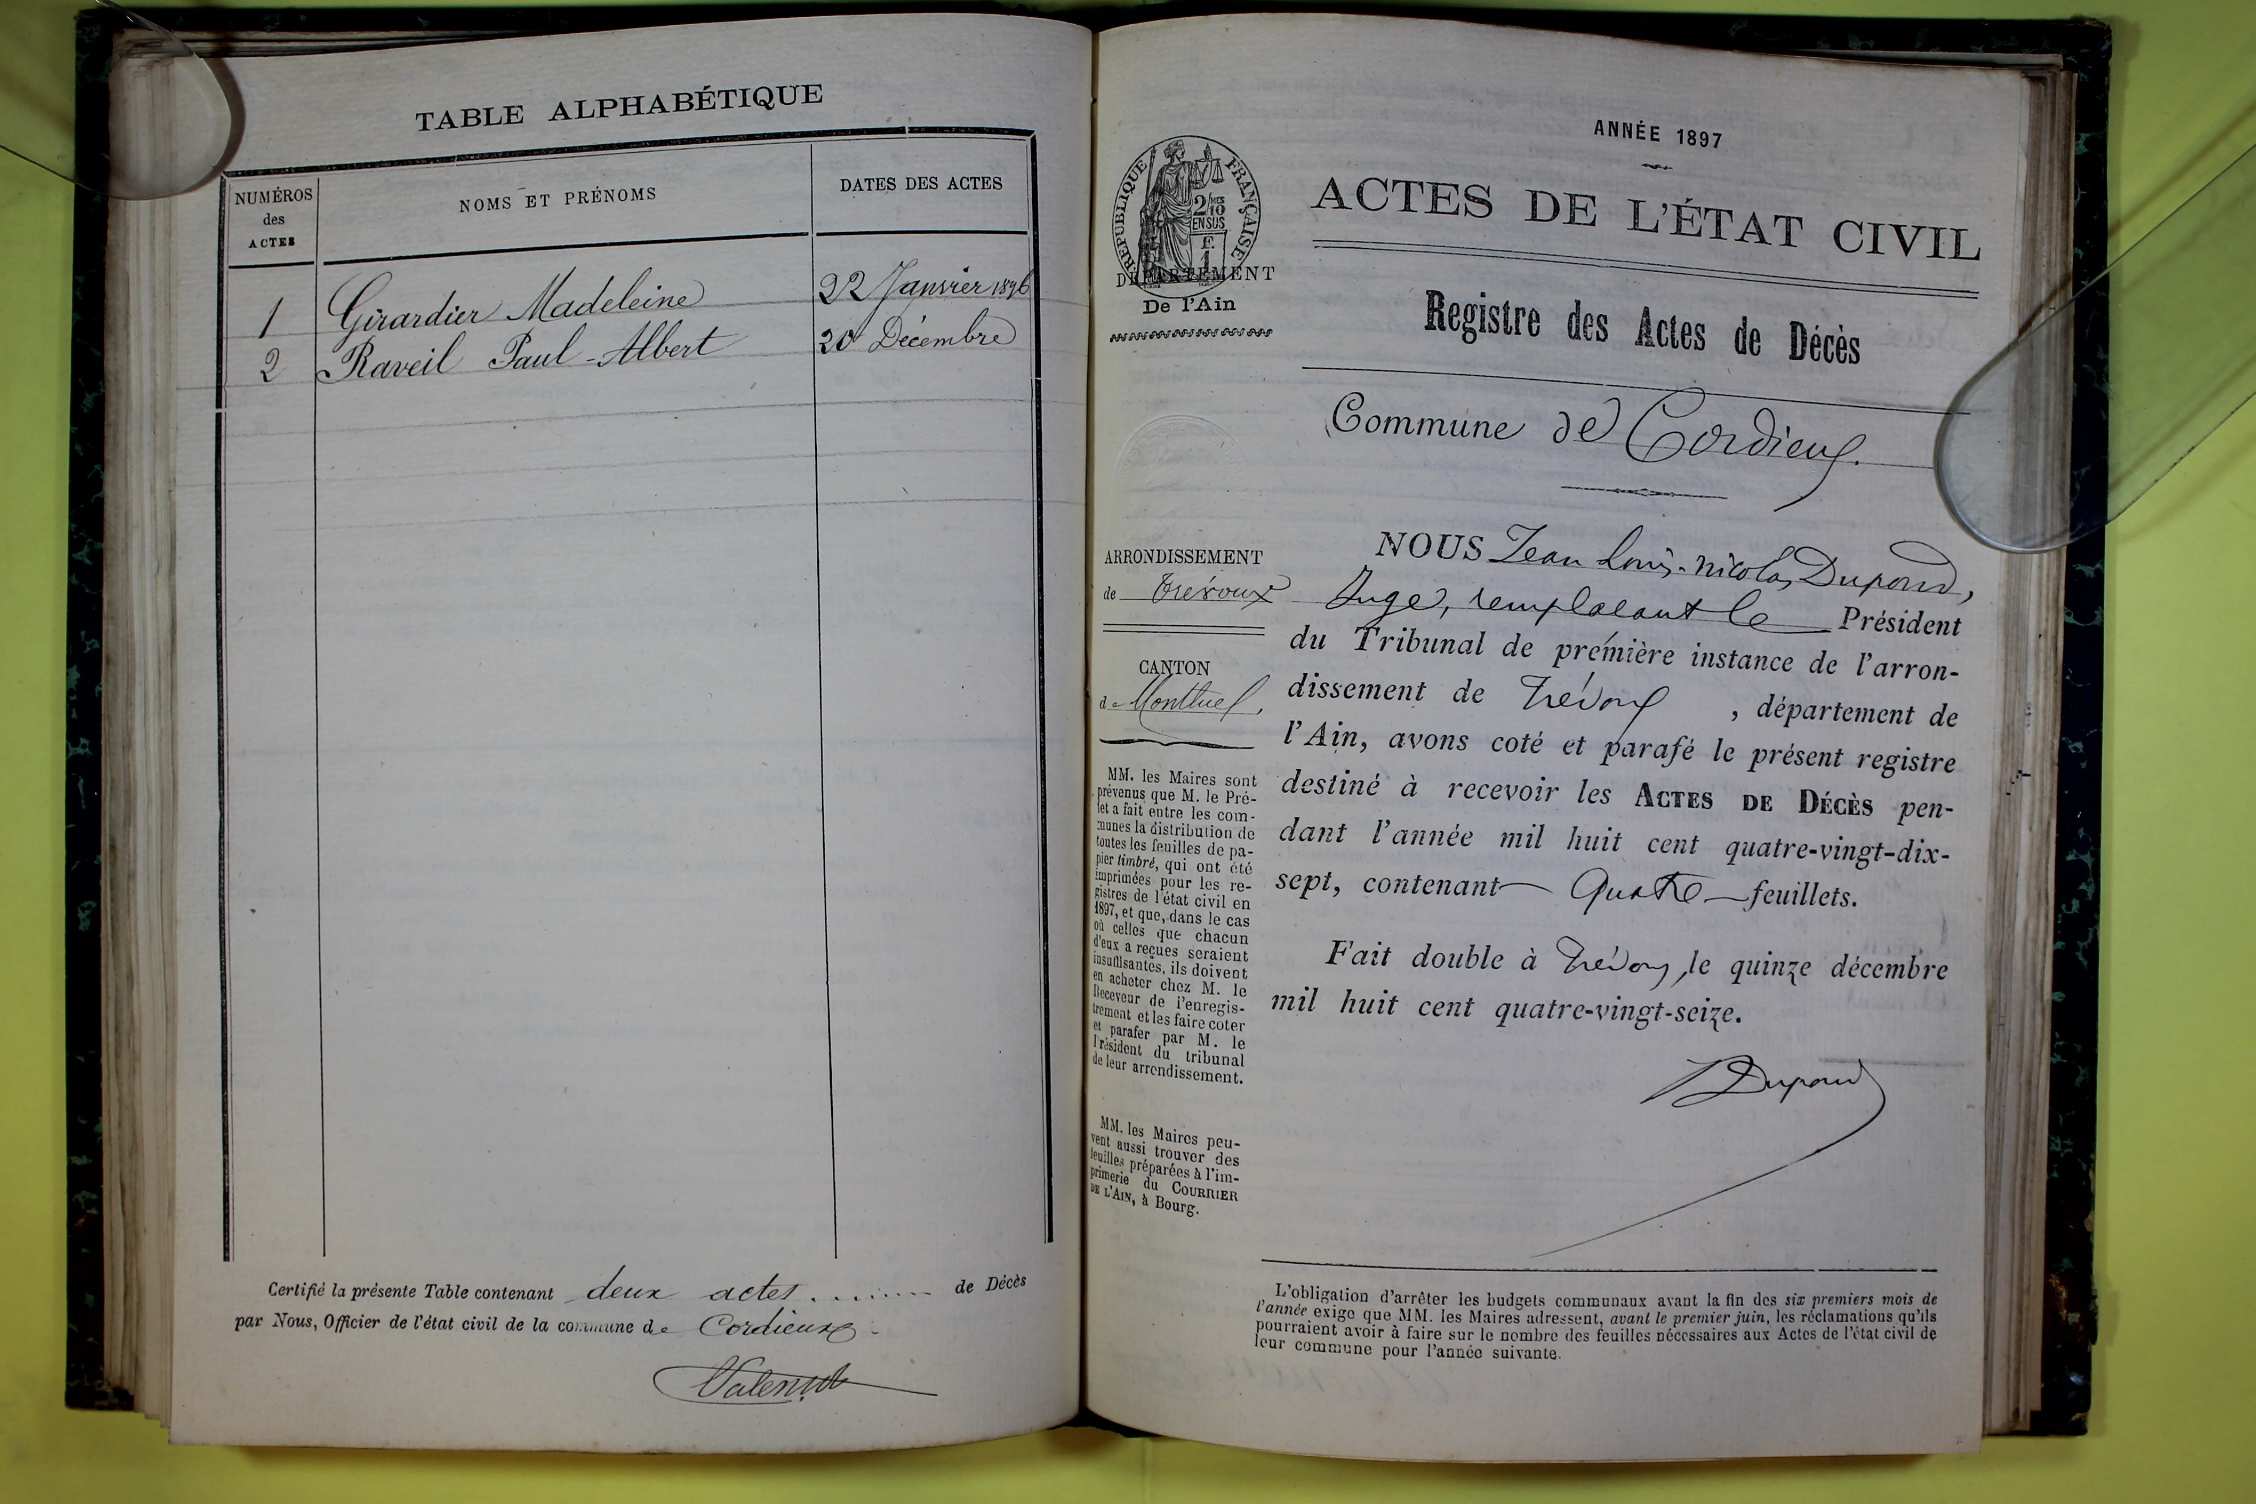 TABLE ALPHABÉTIQUE
NUMÉROS
des
ACTES
NOMS ET PRÉNOMS
DATES DES ACTES
1 Girardier Madeleine 22 Janvier 1896
2 Raveil Paul-Albert 20 Décembre
Certifié la présente Table contenant deux actes de Décès
par Nous, Officier de l'état civil de la commune de Cordieux
ANNÉE 1897
RÉPUBLIQUE FRANÇAISE
2/10
EN SUS
F.
1
DÉPARTEMENT
De l'Ain
ACTES DE L'ÉTAT CIVIL
Registre des Actes de Décès
Commune de Cordieux.
ARRONDISSEMENT
de Trévoux
CANTON
de Montluel,
MM. les Maires sont
prévenus que M. le Pré-
fet a fait entre les com-
munes la distribution de
toutes les feuilles de pa-
pier timbré, qui ont été
imprimées pour les re-
gistres de l'état civil en
1897, et que, dans le cas
où celles que chacun
d'eux a reçues seraient
insuffisantes, ils doivent
en acheter chez M. le
Receveur de l'enregis-
trement et les faire coter
et parafer par M. le
Président du tribunal
de leur arrondissement.
MM. les Maires peu-
vent aussi trouver des
feuilles préparées à l'im-
primerie du COURRIER
DE L'AIN, à Bourg.
NOUS Jean Louis-Nicolas Dupond,
Juge, remplacant le Président
du Tribunal de première instance de l'arron-
dissement de Trévoux, département de
l'Ain, avons coté et parafé le présent registre
destiné à recevoir les ACTES DE DÉCÈS pen-
dant l'année mil huit cent quatre-vingt-dix-
sept, contenant Quatre feuillets.
Fait double à Trévoux, le quinze décembre
mil huit cent quatre-vingt-seize.
Dupond
L'obligation d'arrêter les budgets communaux avant la fin des six premiers mois de
l'année exige que MM. les Maires adressent, avant le premier juin, les réclamations qu'ils
pourraient avoir à faire sur le nombre des feuilles nécessaires aux Actes de l'état civil de
leur commune pour l'année suivante.